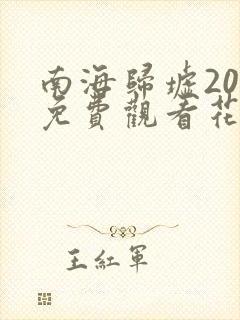 南海歸墟20
免費觀看花
王紅軍